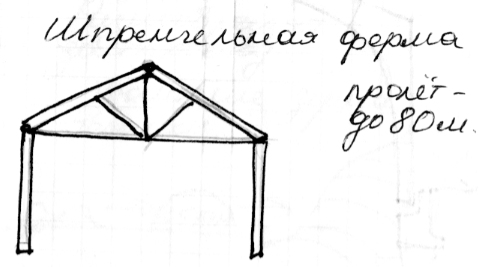 Шпренгельная ферма
пролёт -
до 80м.